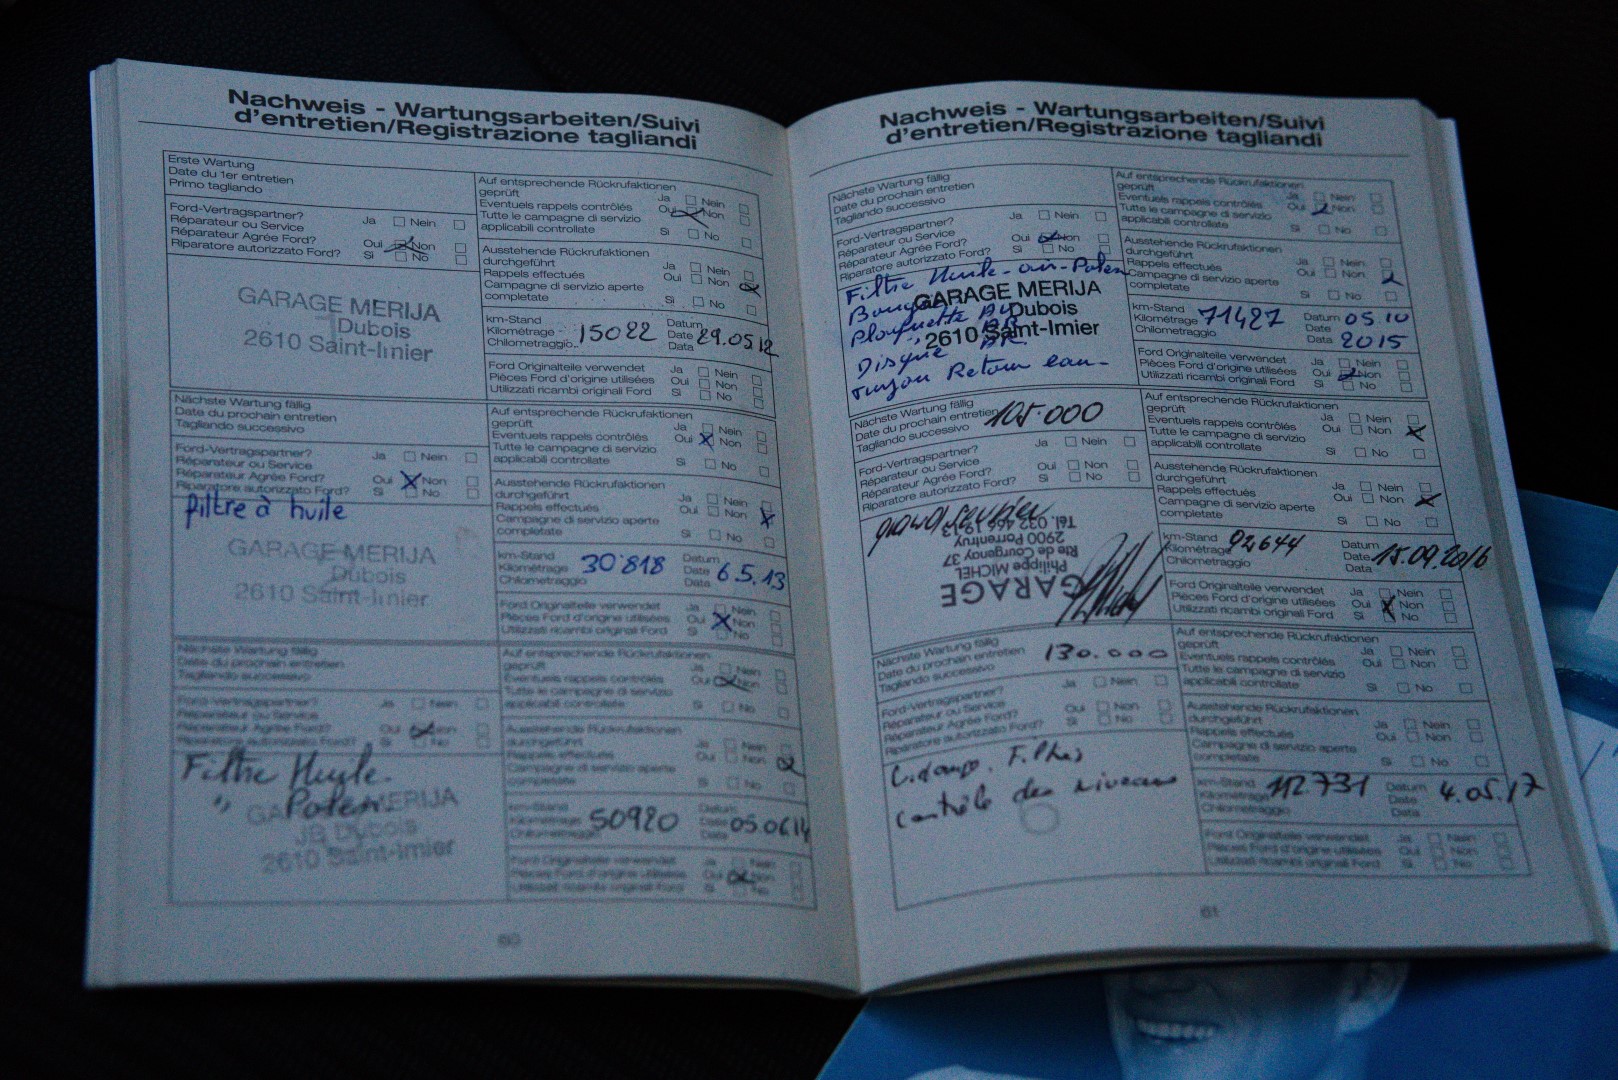 Nachweis - Wartungsarbeiten/Suivi
d'entretien/Registrazione tagliandi
Erste Wartung
Date du 1er entretien
Primo tagliando
Ford-Vertragspartner?
Réparateur ou Service
Réparateur Agrée Ford?
Riparatore autorizzato Ford?
Ja Nein
Oui Non
Si No
GARAGE MERIJA
Dubois
2610 Saint-Imier
Auf entsprechende Rückrufaktionen
geprüft
Eventuels rappels contrôlés
Tutte le campagne di servizio
applicabili controllate
Ja Nein
Oui Non
Si No
Ausstehende Rückrufaktionen
durchgeführt
Rappels effectués
Campagne di servizio aperte
completate
Ja Nein
Oui Non
Si No
km-Stand
Kilométrage
Chilometraggio
15022
Datum
Date
Data
29.05.12
Ford Originalteile verwendet
Pièces Ford d'origine utilisées
Utilizzati ricambi originali Ford
Ja Nein
Oui Non
Si No
Nächste Wartung fällig
Date du prochain entretien
Tagliando successivo
Ford-Vertragspartner?
Réparateur ou Service
Réparateur Agrée Ford?
Riparatore autorizzato Ford?
Ja Nein
Oui Non
Si No
filtre à huile
GARAGE MERIJA
Dubois
2610 Saint-Imier
Auf entsprechende Rückrufaktionen
geprüft
Eventuels rappels contrôlés
Tutte le campagne di servizio
applicabili controllate
Ja Nein
Oui Non
Si No
Ausstehende Rückrufaktionen
durchgeführt
Rappels effectués
Campagne di servizio aperte
completate
Ja Nein
Oui Non
Si No
km-Stand
Kilométrage
Chilometraggio
30'818
Datum
Date
Data
6.5.13
Ford Originalteile verwendet
Pièces Ford d'origine utilisées
Utilizzati ricambi originali Ford
Ja Nein
Oui Non
Si No
Nächste Wartung fällig
Date du prochain entretien
Tagliando successivo
Ford-Vertragspartner?
Réparateur ou Service
Réparateur Agrée Ford?
Riparatore autorizzato Ford?
Ja Nein
Oui Non
Si No
Filtre Huyle.
" Polen
GARAGE MERIJA
JB Dubois
2610 Saint-Imier
Auf entsprechende Rückrufaktionen
geprüft
Eventuels rappels contrôlés
Tutte le campagne di servizio
applicabili controllate
Ja Nein
Oui Non
Si No
Ausstehende Rückrufaktionen
durchgeführt
Rappels effectués
Campagne di servizio aperte
completate
Ja Nein
Oui Non
Si No
km-Stand
Kilométrage
Chilometraggio
50920
Datum
Date
Data
05.0614
Ford Originalteile verwendet
Pièces Ford d'origine utilisées
Utilizzati ricambi originali Ford
Ja Nein
Oui Non
Si No
60
Nachweis - Wartungsarbeiten/Suivi
d'entretien/Registrazione tagliandi
Nächste Wartung fällig
Date du prochain entretien
Tagliando successivo
Ford-Vertragspartner?
Réparateur ou Service
Réparateur Agrée Ford?
Riparatore autorizzato Ford?
Ja Nein
Oui Non
Si No
Filtre Huile-air-Polen
GARAGE MERIJA
Dubois
2610 Saint-Imier
Disque AR
Retour eau-
Auf entsprechende Rückrufaktionen
geprüft
Eventuels rappels contrôlés
Tutte le campagne di servizio
applicabili controllate
Ja Nein
Oui Non
Si No
Ausstehende Rückrufaktionen
durchgeführt
Rappels effectués
Campagne di servizio aperte
completate
Ja Nein
Oui Non
Si No
km-Stand
Kilométrage
Chilometraggio
71427
Datum
Date
Data
05.10
2015
Ford Originalteile verwendet
Pièces Ford d'origine utilisées
Utilizzati ricambi originali Ford
Ja Nein
Oui Non
Si No
Nächste Wartung fällig
Date du prochain entretien
Tagliando successivo
105.000
Ford-Vertragspartner?
Réparateur ou Service
Réparateur Agrée Ford?
Riparatore autorizzato Ford?
Ja Nein
Oui Non
Si No
GARAGE
Philippe MICHEL
Rte de Courgenay 37
2900 Porrentruy
Tél. 032 466 19 13
Auf entsprechende Rückrufaktionen
geprüft
Eventuels rappels contrôlés
Tutte le campagne di servizio
applicabili controllate
Ja Nein
Oui Non
Si No
Ausstehende Rückrufaktionen
durchgeführt
Rappels effectués
Campagne di servizio aperte
completate
Ja Nein
Oui Non
Si No
km-Stand
Kilométrage
Chilometraggio
92644
Datum
Date
Data
15.09.2016
Ford Originalteile verwendet
Pièces Ford d'origine utilisées
Utilizzati ricambi originali Ford
Ja Nein
Oui Non
Si No
Nächste Wartung fällig
Date du prochain entretien
Tagliando successivo
130.000
Ford-Vertragspartner?
Réparateur ou Service
Réparateur Agrée Ford?
Riparatore autorizzato Ford?
Ja Nein
Oui Non
Si No
Vidange. Filtres
contrôle des niveaux
Auf entsprechende Rückrufaktionen
geprüft
Eventuels rappels contrôlés
Tutte le campagne di servizio
applicabili controllate
Ja Nein
Oui Non
Si No
Ausstehende Rückrufaktionen
durchgeführt
Rappels effectués
Campagne di servizio aperte
completate
Ja Nein
Oui Non
Si No
km-Stand
Kilométrage
Chilometraggio
112.731
Datum
Date
Data
4.05.17
Ford Originalteile verwendet
Pièces Ford d'origine utilisées
Utilizzati ricambi originali Ford
Ja Nein
Oui Non
Si No
61